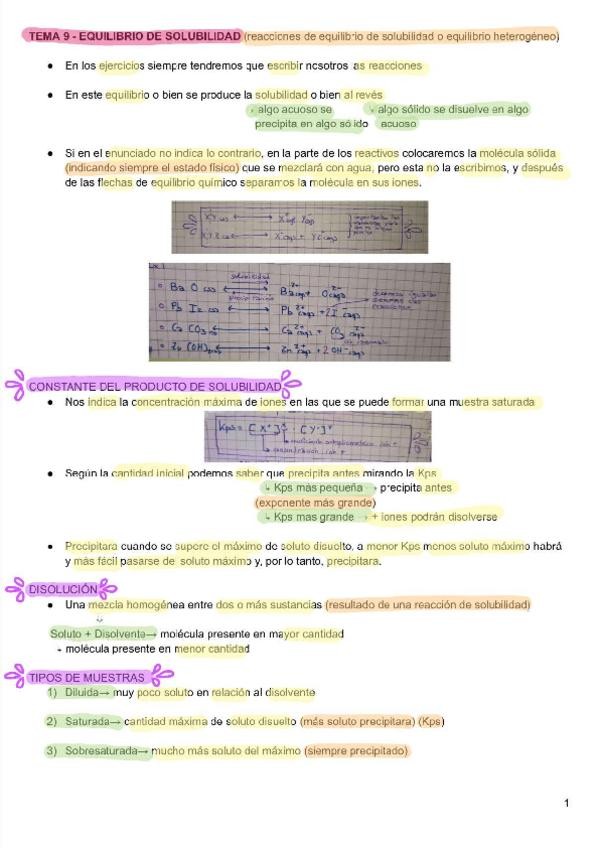 TEMA 9 - EQUILIBRIO DE SOLUBILIDAD (reacciones de equilibrio de solubilidad o equilibrio heterogéneo)
● En los ejercicios siempre tendremos que escribir nosotros las reacciones
● En este equilibrio o bien se produce la solubilidad o bien al revés
↳ algo acuoso se precipita en algo sólido
↳ algo sólido se disuelve en algo acuoso
● Si en el enunciado no indica lo contrario, en la parte de los reactivos colocaremos la molécula sólida
(indicando siempre el estado físico) que se mezclará con agua, pero esta no la escribimos, y después
de las flechas de equilibrio químico separamos la molécula en sus iones.
solubilidad
Ba O (s) ⟷ Ba²⁺(aq) + O²⁻(aq)
precipitación
Pb I₂ (s) ⟷ Pb²⁺(aq) + 2I⁻(aq)
Ca CO₃ (s) ⟷ Ca²⁺(aq) + CO₃²⁻(aq)
Zn (OH)₂ (s) ⟷ Zn²⁺(aq) + 2OH⁻(aq)
CONSTANTE DEL PRODUCTO DE SOLUBILIDAD
● Nos indica la concentración máxima de iones en las que se puede formar una muestra saturada
Kps = [X⁺]ˣ · [Y⁻]ʸ
● Según la cantidad inicial podemos saber que precipita antes mirando la Kps
↳ Kps más pequeña → precipita antes
(exponente más grande)
↳ Kps mas grande → + iones podrán disolverse
● Precipitara cuando se supere el máximo de soluto disuelto, a menor Kps menos soluto máximo habrá
y más fácil pasarse de soluto máximo y, por lo tanto, precipitara.
DISOLUCIÓN
● Una mezcla homogénea entre dos o más sustancias (resultado de una reacción de solubilidad)
Soluto + Disolvente→ molécula presente en mayor cantidad
↳ molécula presente en menor cantidad
TIPOS DE MUESTRAS
1) Diluida→ muy poco soluto en relación al disolvente
2) Saturada→ cantidad máxima de soluto disuelto (más soluto precipitara) (Kps)
3) Sobresaturada→ mucho más soluto del máximo (siempre precipitado)
1